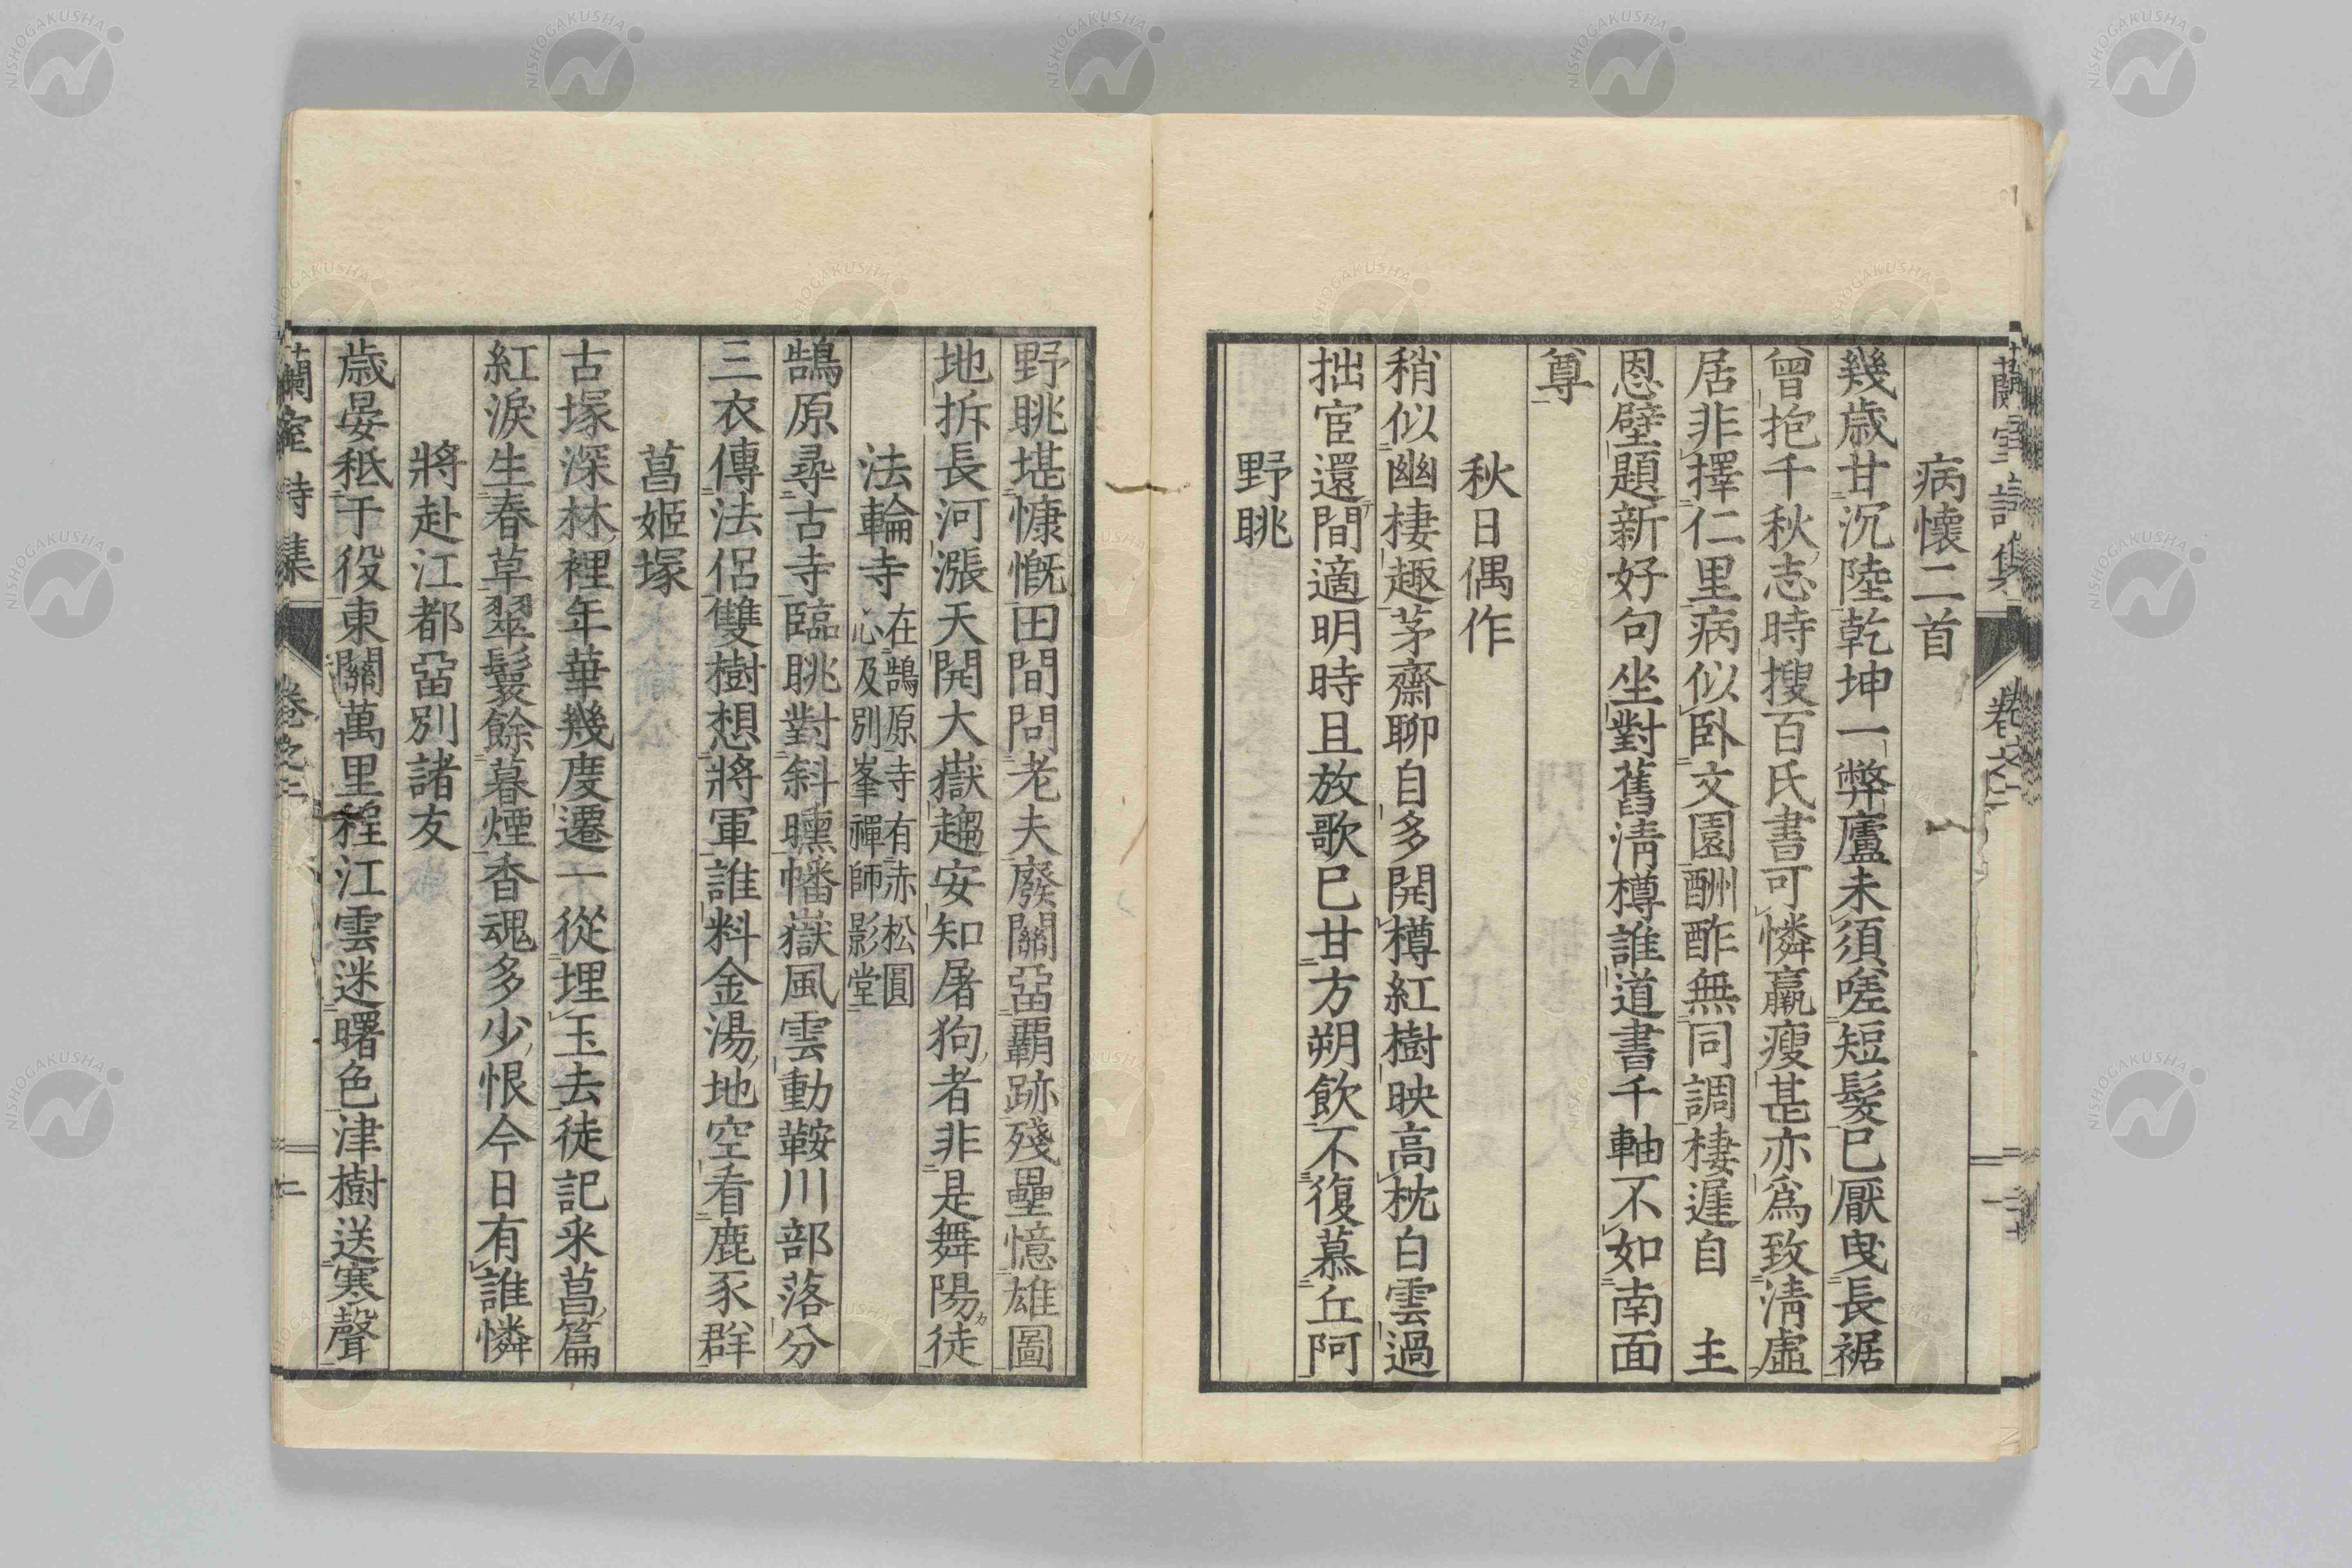 病懷二首
幾歳甘沉陸乾坤一弊廬未須嗟短髮已厭曳長裾
曾抱千秋志時搜百氏書可憐羸瘦甚亦爲致清虛
居非擇仁里病似臥文園酬酢無同調棲遲自 主
恩壁題新好句坐對舊淸樽誰道書千軸不如南面
尊
秋日偶作
稍似幽棲趣茅齋聊自多開樽紅樹映高枕白雲過
拙宦還間適明時且放歌已甘方朔飲不復慕丘阿
野眺
野眺堪慷慨田間問老夫廢關畱覇跡殘壘憶雄圖
地拆長河漲天開大嶽趨安知屠狗者非是舞陽徒
法輪寺 在鵠原寺有赤松圓
心及別峯禪師影堂
鵠原尋古寺臨眺對斜曛幡嶽風雲動鞍川部落分
三衣傳法侶雙樹想將軍誰料金湯地空看鹿豕群
菖姬塚
古塚深林裡年華幾度遷一從埋玉去徒記采菖篇
紅淚生春草翠鬟餘暮煙香魂多少恨今日有誰憐
將赴江都畱別諸友
歳晏秪于役東關萬里程江雲迷曙色津樹送寒聲
蘭室詩集 卷之二 二